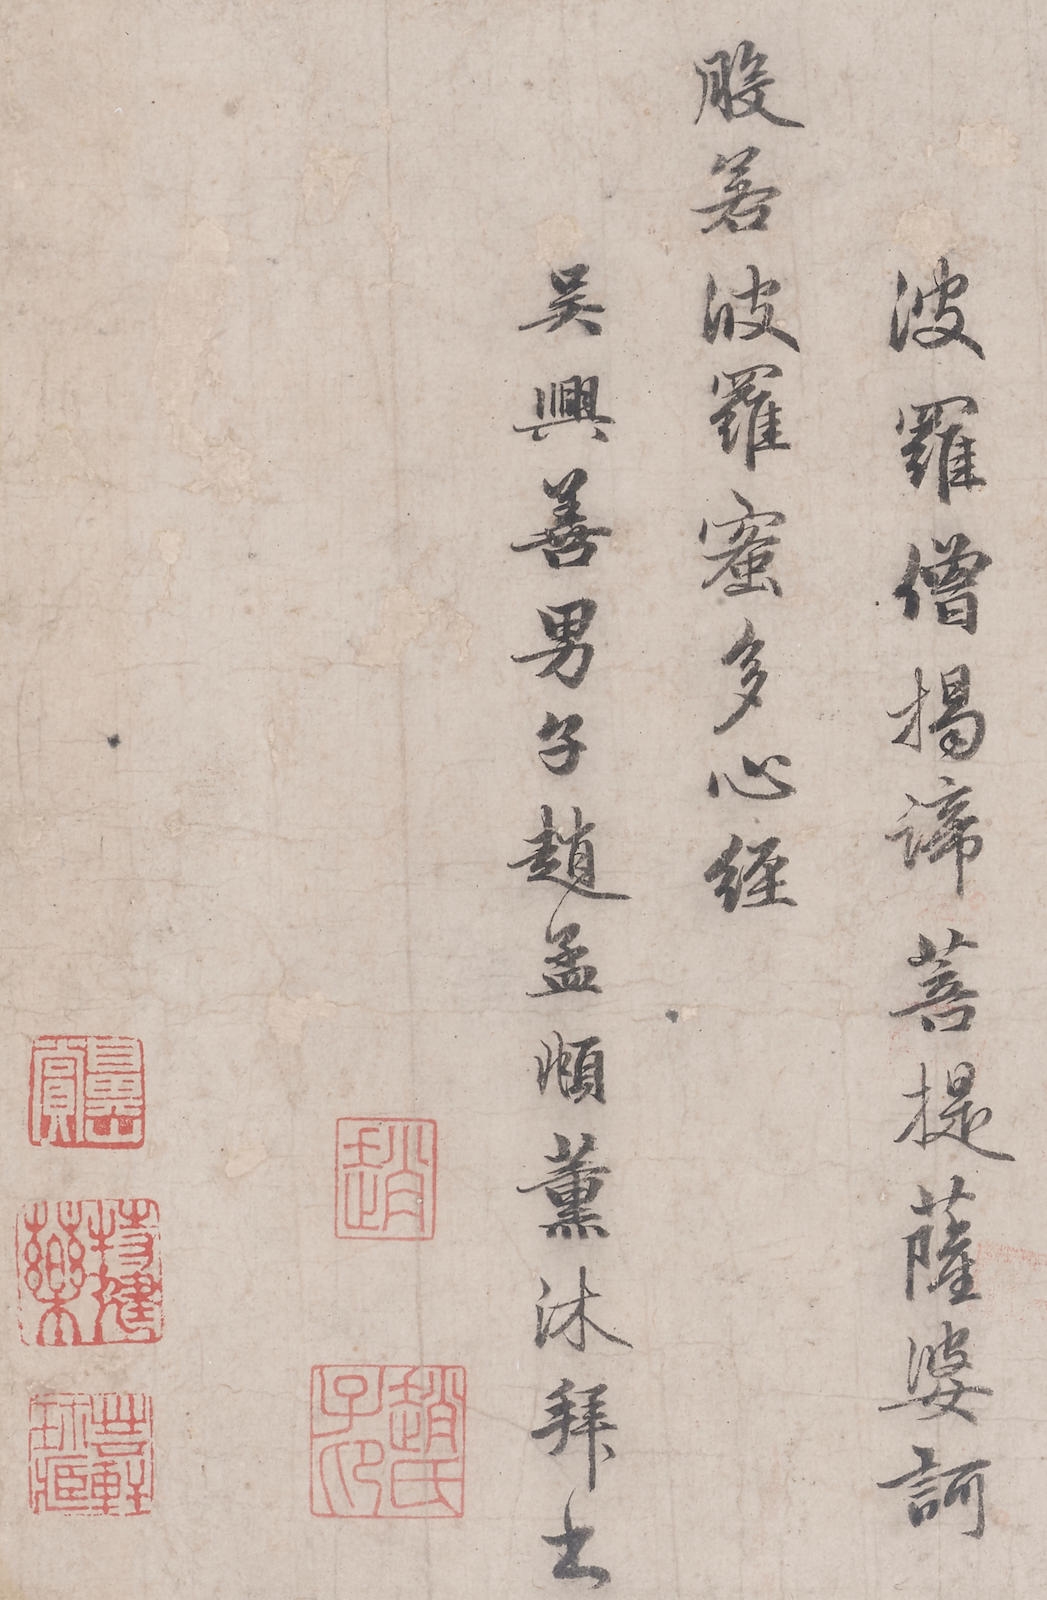 波羅僧揭諦菩提薩婆訶
般若波羅蜜多心經
吳興善男子趙孟頫薰沐拜書
趙
趙氏子昂
特健藥